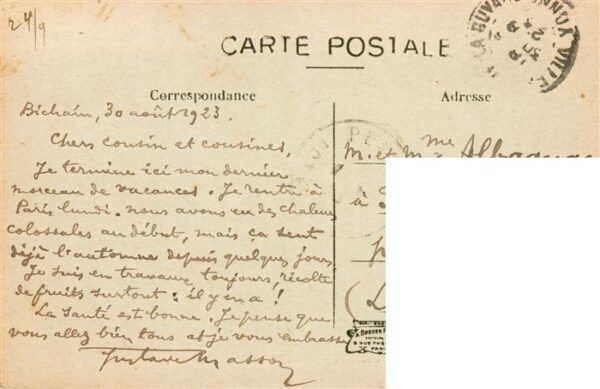 24/9
CARTE POSTALE
Correspondance
Adresse
Bichain, 30 août 1923.
Chers cousin et cousines,
Je termine ici mon dernier
morceau de vacances. Je rentre à
Paris lundi. nous avons eu des chaleurs
colossales au début, mais ça sent
déjà l'automne depuis quelques jours
Je suis en travaux, toujours, récolte
de fruits surtout : il y en a !
La santé est bonne. Je pense que
vous allez bien tous et je vous embrasse
Gustave Masson
M. et Mme
à